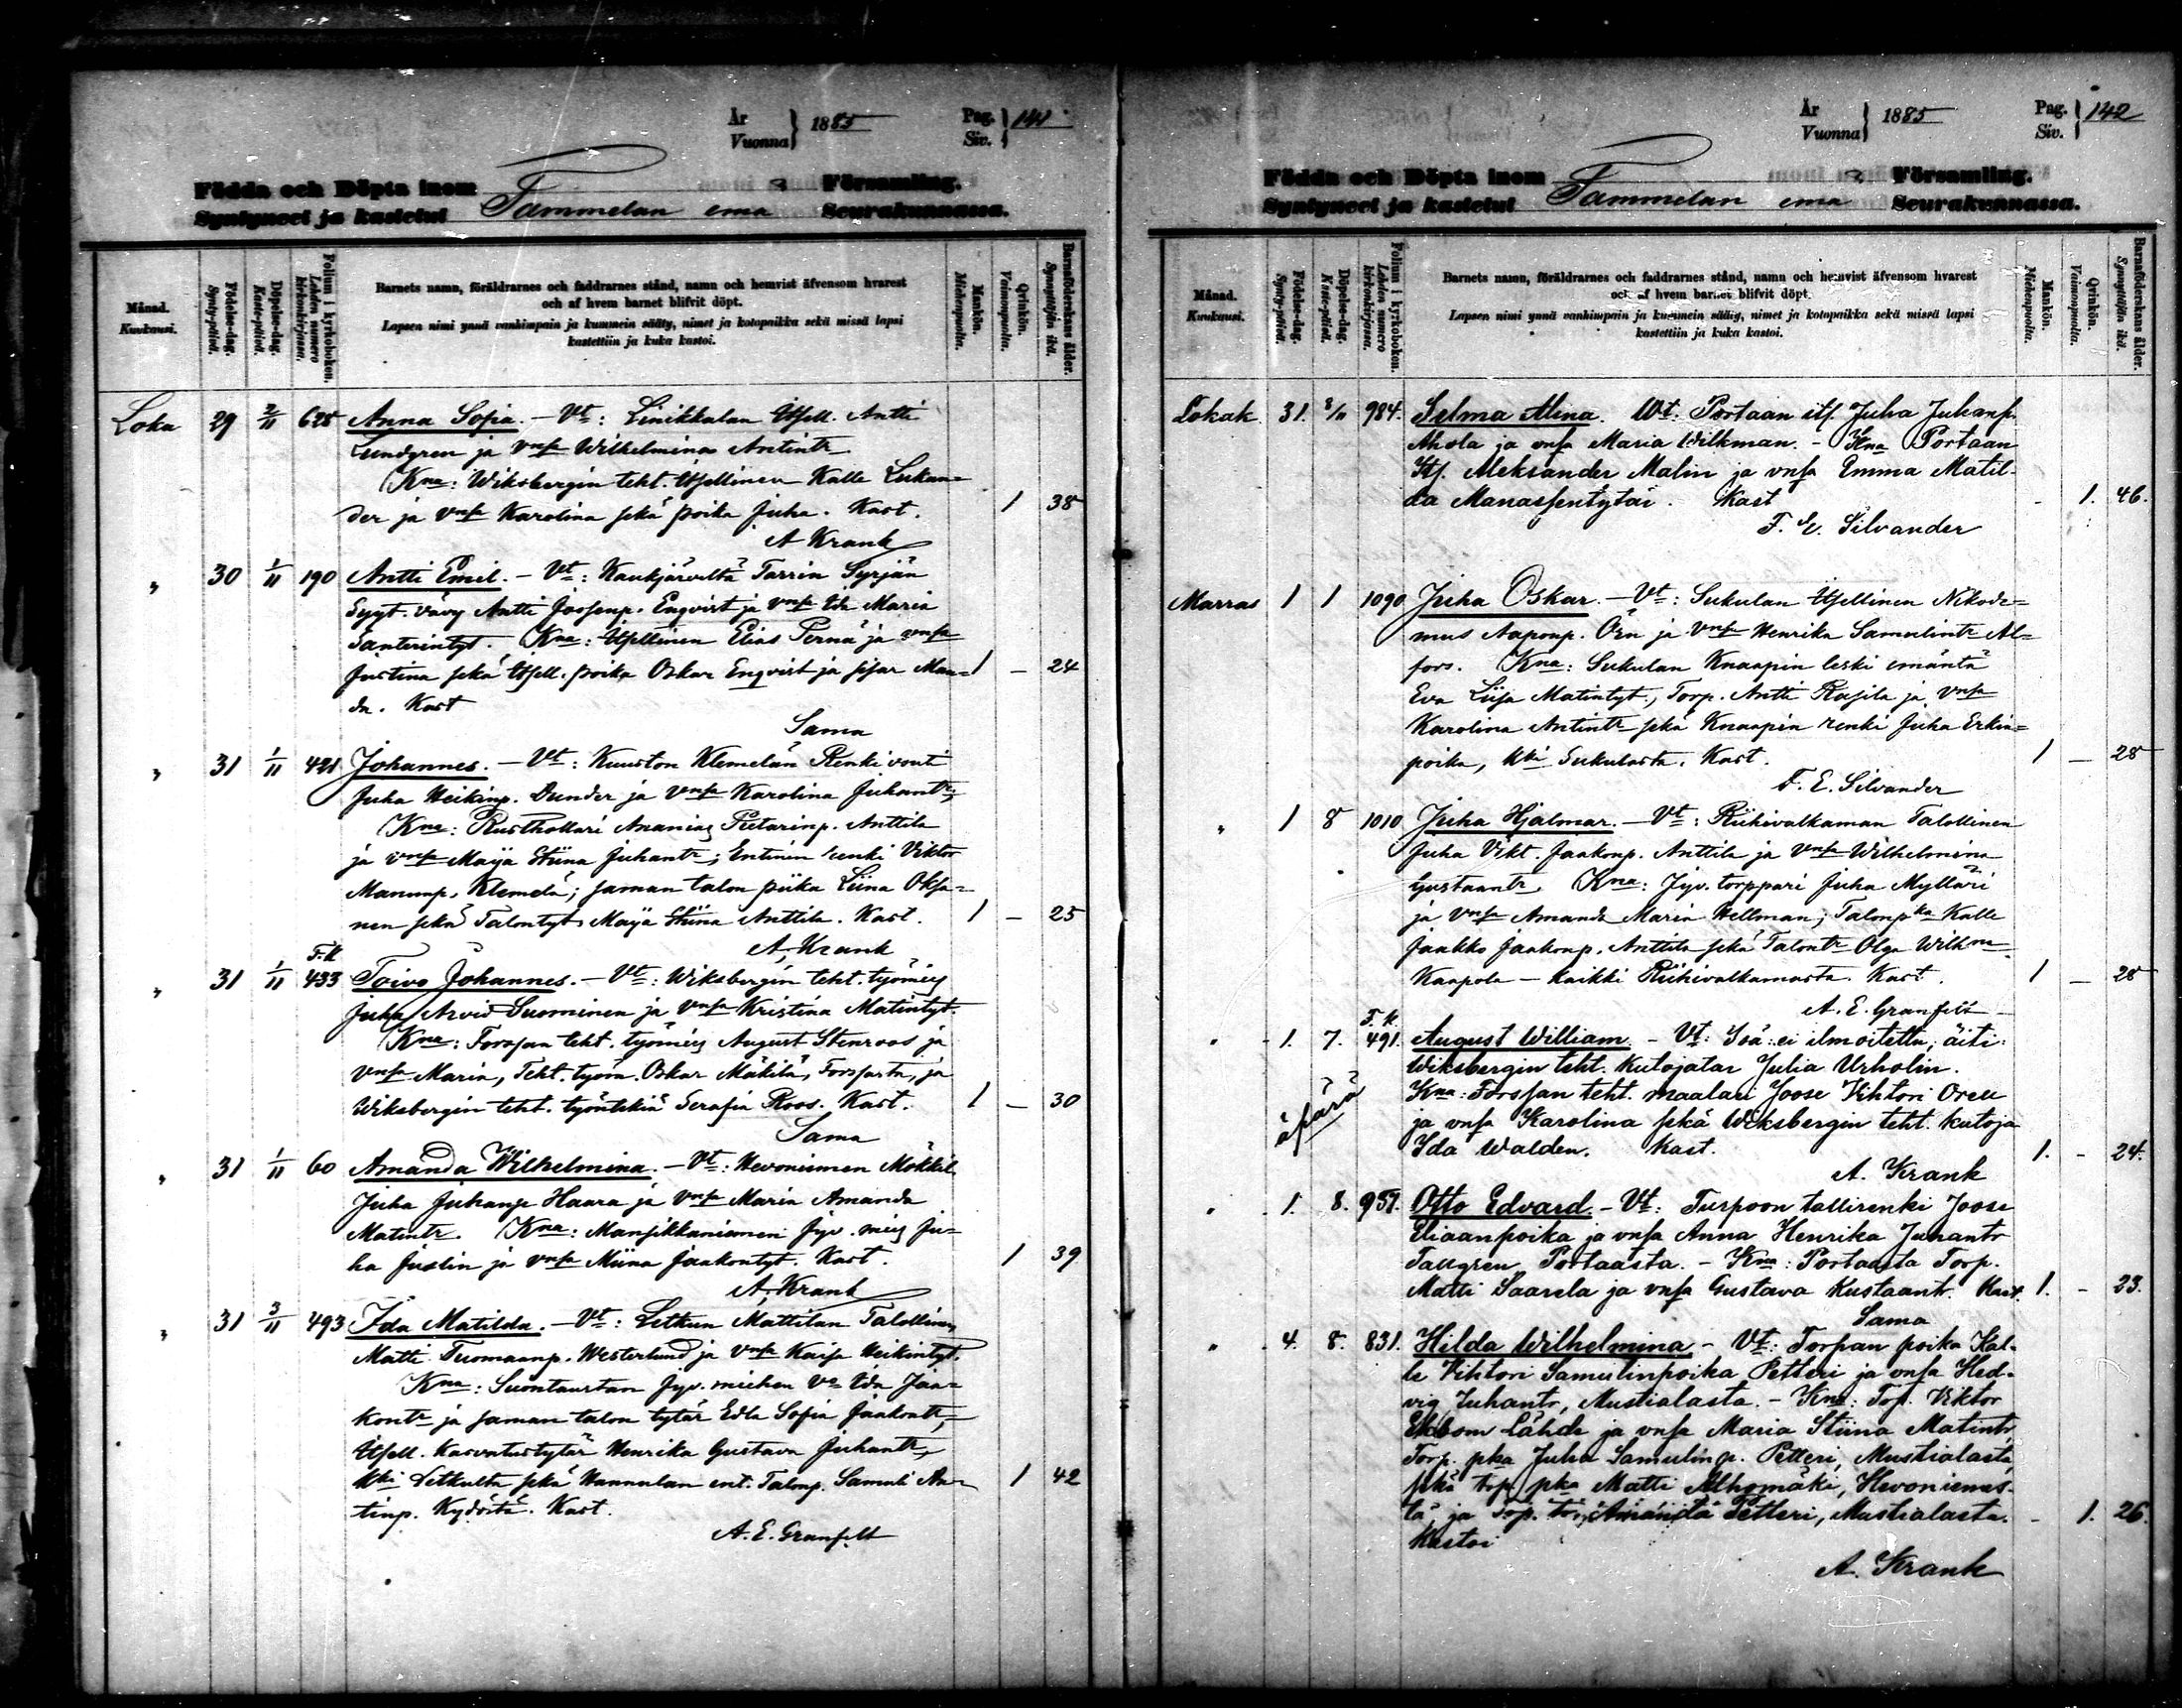 År
Vuonna
1885
Pag.
Siv.
141
Födda och Döpta inom
Syntyneet ja kastetut
Tammelan ema
Församling.
Seurakunnassa.
Månad.
Kuukausi.
Födelse-dag.
Synty-päivä.
Döpelse-dag.
Kaste-päivä.
Folium i kyrkoboken.
Lehden numero kirkonkirjassa.
Barnets namn, föräldrarnes och faddrarnes stånd, namn och hemvist äfvensom hvarest
och af hvem barnet blifvit döpt.
Lapsen nimi ynnä vanhimpain ja kummein sääty, nimet ja kotopaikka sekä missä lapsi
kastettiin ja kuka kastoi.
Mankön.
Miehenpuolta.
Qvinkön.
Vaimonpuolta.
Barnaföderskans ålder.
Synnyttäjän ikä.
Loka 29 2/11 625 Anna Sofia. – Vt: Linikkalan Itsell. Antti
Lundgren ja vmsa Wilhelmina Antintr
Kna: Wiksbergin teht. Itsellinen Kalle Lukan=
der ja vmsa Karolina sekä poika Juha. Kast. 1 38
A Krank
" 30 1/11 190 Antti Emil. – Vt: Kaukjärveltä Tarrin Syrjän
Sygt. vävy Antti Joosenp. Enqvist ja vmsa Ida Maria
Santerintyt. Kna: Itsellinen Elias Pernä ja vmsa
Justina sekä Itsell. poika Oskar Enqvist ja sisar Man= 1 – 24
da. Kast
Sama
" 31 1/11 421 Johannes. – Vt: Kuuston Klemelän Renkivouti
Juha Heikinp. Dunder ja vmsa Karolina Juhantr,
Kna: Rusthollari Ananias Pietarinp. Anttila
ja vmsa Maija Stiina Juhantr; Entinen renki Viktor
Manunp. Klemelä; saman talon piika Liina Oksa=
nen sekä Talontyt. Maija Stiina Anttila. Kast. 1 – 25
A. Krank
" 31 1/11 F.k 433 Toivo Johannes. – Vt: Wiksbergin teht. työmies
Juha Arvid Suominen ja vmsa Kristina Matintyt.
Kna: Forssan teht. työmies August Stenroos ja
vmsa Maria, Teht. työm. Oskar Mäkilä, Forssasta, ja
Wiksbergin teht. työntekiä Serafia Roos. Kast. 1 – 30
Sama
" 31 1/11 60 Amanda Wilhelmina. – Vt: Hevoniemen Mökkil.
Juha Juhanp Haara ja vmsa Maria Amanda
Matintr. Kna: Mansikkaniemen Jyv. mies Ju=
ha Juslin ja vmsa Miina Jaakontyt. Kast. 1 39
A. Krank
" 31 3/11 493 Ida Matilda. – Vt: Letkun Mattilan Talollinen
Matti Tuomaanp. Westerlund ja vmsa Kaisa Heikintyt.
Kna: Suontaustan Jyv. miehen vo Ida Jaa=
kontr ja saman talon tytär Edla Sofia Jaakontr,
Itsell. Kasvatustytär Henrika Gustava Juhantr,
kki Letkulta sekä Hannulan ent. Talonp. Samuli An= 1 42
tinp. Kydöstä. Kast.
A. E. Granfelt
År
Vuonna
1885
Pag.
Siv.
142
Födda och Döpta inom
Syntyneet ja kastetut
Tammelan ema
Församling.
Seurakunnassa.
Månad.
Kuukausi.
Födelse-dag.
Synty-päivä.
Döpelse-dag.
Kaste-päivä.
Folium i kyrkoboken.
Lehden numero kirkonkirjassa.
Barnets namn, föräldrarnes och faddrarnes stånd, namn och hemvist äfvensom hvarest
och af hvem barnet blifvit döpt.
Lapsen nimi ynnä vanhimpain ja kummein sääty, nimet ja kotopaikka sekä missä lapsi
kastettiin ja kuka kastoi.
Mankön.
Miehenpuolta.
Qvinkön.
Vaimonpuolta.
Barnaföderskans ålder.
Synnyttäjän ikä.
Lokak 31. /11 984. Selma Alina. Wt: Portaan itf. Juha Juhanp.
Ahola ja vmsa Maria Wilkman. – Kna Portaan
Itf. Aleksander Malin ja vmsa Emma Matil-
da Manassentytär. Kast – 1. 46.
F. E. Silvander
Marras 1 1 1090 Juha Oskar. – Vt: Sukulan Itsellinen Nikode=
mus Aaponp. Örn ja vmsa Henrika Samulintr Al=
fors. Kna: Sukulan Knaapin leski emäntä
Eva Liisa Matintyt., Torp. Antti Rasila ja vmsa
Karolina Antintr sekä Knaapin renki Juha Erkin=
poika, kki Sukulasta. Kast. 1 – 28
F. E. Silvander
" 1 8 1010 Juha Hjalmar. – Vt: Riihivalkaman Talollinen
Juha Vikt. Jaakonp. Anttila ja vmsa Wilhelmina
Gustaantr. Kna: Jyv. torppari Juha Mylläri
ja vmsa Amanda Maria Hellman; Talonpka Kalle
Jaakko Jaakonp. Anttila sekä Talontr Olga Wilhm.
Kaapola – kaikki Riihivalkamasta. Kast. 1 – 28
A. E. Granfelt
" 1. 7. F.k. 491. August William – Vt: Isä: ei ilmoitettu, äiti:
Wiksbergin teht. kutojatar Julia Urholin.
äpärä
Kna: Forssan teht. maalari Joose Vihtori Oren
ja vmsa Karolina sekä Wiksbergin teht. kutoja
Ida Walden. Kast. 1. – 24.
A. Krank
" 1. 8. 957. Otto Edvard – Vt: Turpoon tallirenki Joose
Eliaanpoika ja vmsa Anna Henrika Juhantr
Tallgren Portaasta. – Kna: Portaasta Torp.
Matti Saarela ja vmsa Gustava Kustaantr. Kast. 1. – 23.
Sama
" 4. 8. 831. Hilda Wilhelmina – Vt: Torpan poika Kal-
le Vihtori Samulinpoika Petteri ja vmsa Hed-
vig Juhantr, Mustialasta. – Kna: Top. Viktor
Ekbom Lähde ja vmsa Maria Stiina Matintr,
Torp. pka Juha Samulinp. Petteri, Mustialasta,
sekä torp. pka Matti Alhomäki, Hevoniemes-
tä, ja torp. tr. Amanda Petteri, Mustialasta. – 1. 26.
Kastoi
A. Krank